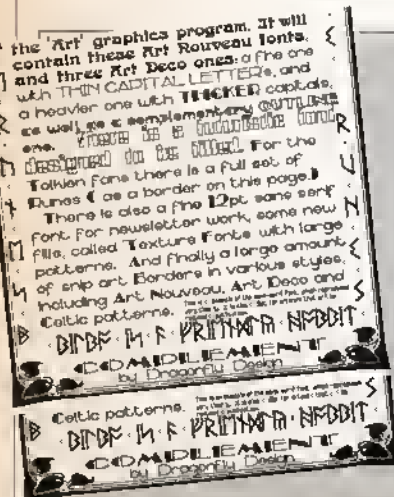 the 'Art' graphics program. It will
contain these Art Nouveau fonts,
and three Art Deco ones: a fine one
with THIN CAPITAL LETTERs, and
a heavier one with THICKER capitals,
as well as a complementary OUTLINE
one. There is a futuristic font
designed to be filled. For the
Tolkien fans there is a full set of
Runes ( as a border on this page.)
There is also a fine 12pt sans serif
font for newsletter work, some new
fills, called Texture Fonts with large
patterns. And finally a large amount
of snip art Borders in various styles,
including Art Nouveau, Art Deco and
Celtic patterns.
ᛒᛁᛚᛒᚩ · ᛁᛋ · ᚫ · ᚠᚱᛁᛖᚾᛞᛚᚣ · ᚻᚩᛒᛒᛁᛏ
COMPLIEMENT
by Dragonfly Design
Celtic patterns.
ᛒᛁᛚᛒᚩ · ᛁᛋ · ᚫ · ᚠᚱᛁᛖᚾᛞᛚᚣ · ᚻᚩᛒᛒᛁᛏ
COMPLIEMENT
by Dragonfly Design